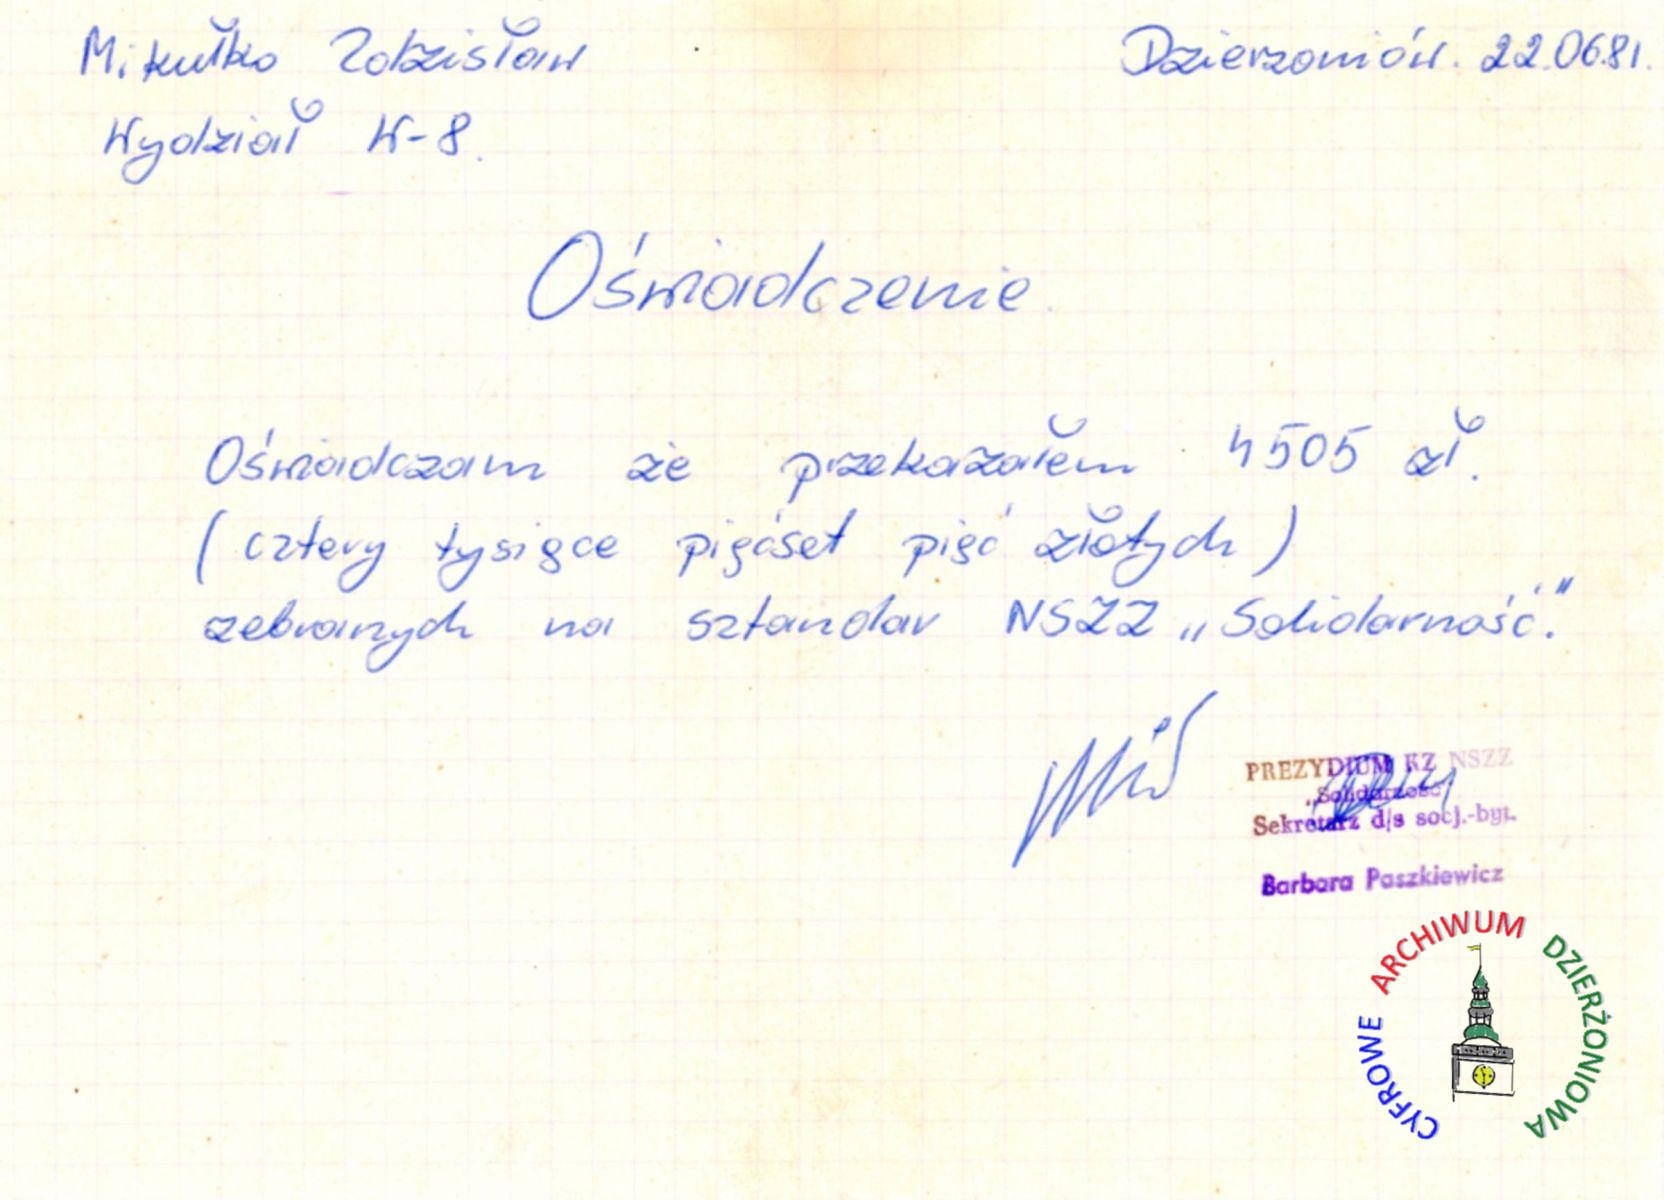 Mikułko Zdzisław
Dzierżoniów. 22.06.81.
Wydział W-8.
Oświadczenie.
Oświadczam że przekazałem 4505 zł.
(cztery tysiące pięćset pięć złotych)
zebranych na sztandar NSZZ „Solidarność."
PREZYDIUM KZ NSZZ
„Solidarność"
Sekretarz d/s socj.-byt.
Barbara Paszkiewicz
CYFROWE ARCHIWUM DZIERŻONIOWA